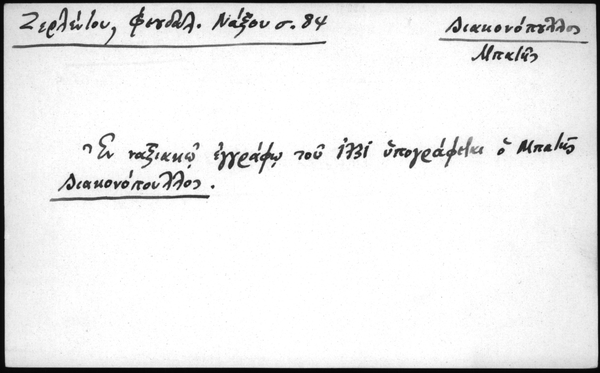 Ζερλέντου, Φεουδαλ. Νάξου σ. 84
Διακονόπουλλος
Μπατῆς
Ἐν ναξιακῷ ἐγγράφῳ τοῦ 1731 ὑπογράφεται ὁ Μπατῆς
Διακονόπουλλος.